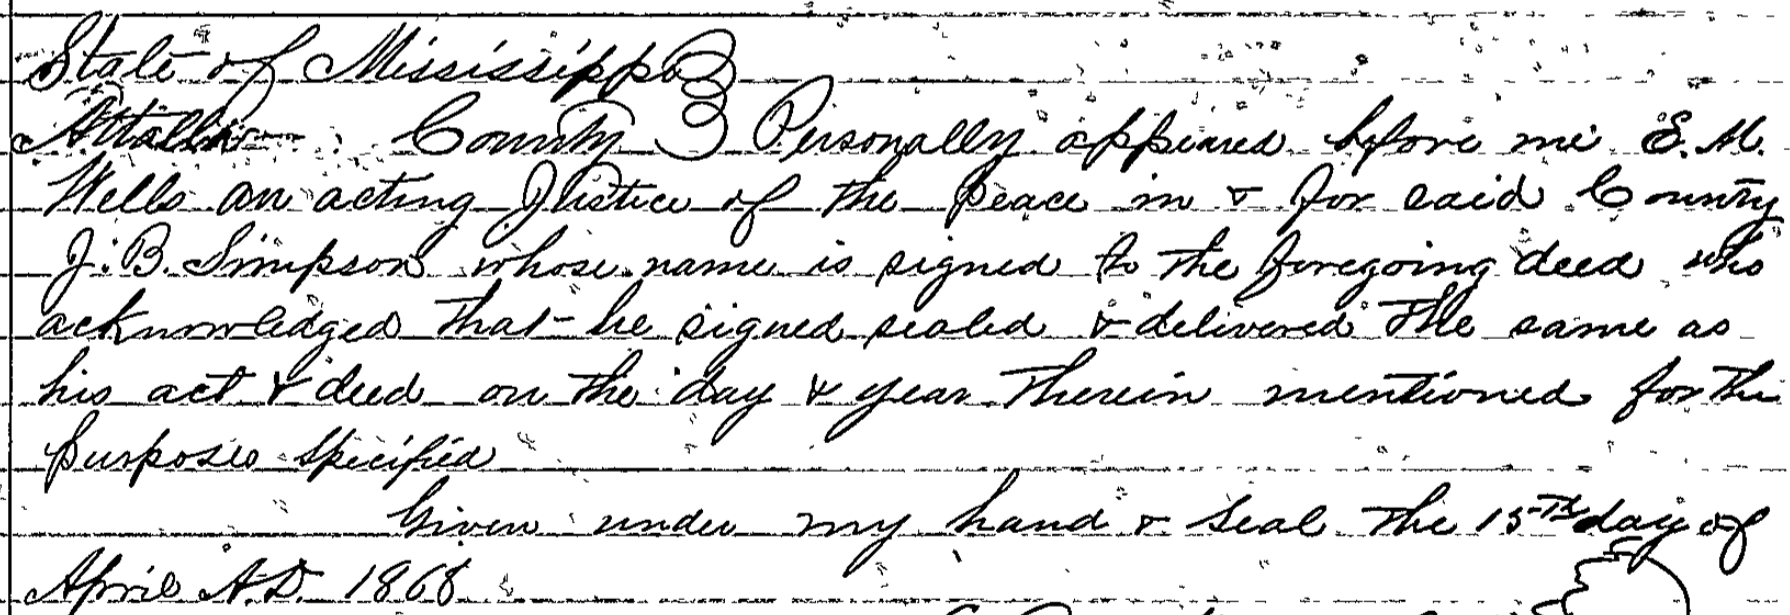 State of Mississippi }
Attalla County } Personally appeared before me E. M.
Wells an acting Justice of the peace in & for said County
J. B. Simpson whose name is signed to the foregoing deed who
acknowledged that he signed sealed & delivered the same as
his act & deed on the day & year therein mentioned for the
purposes specified
Given under my hand & seal the 15th day of
April A.D. 1868